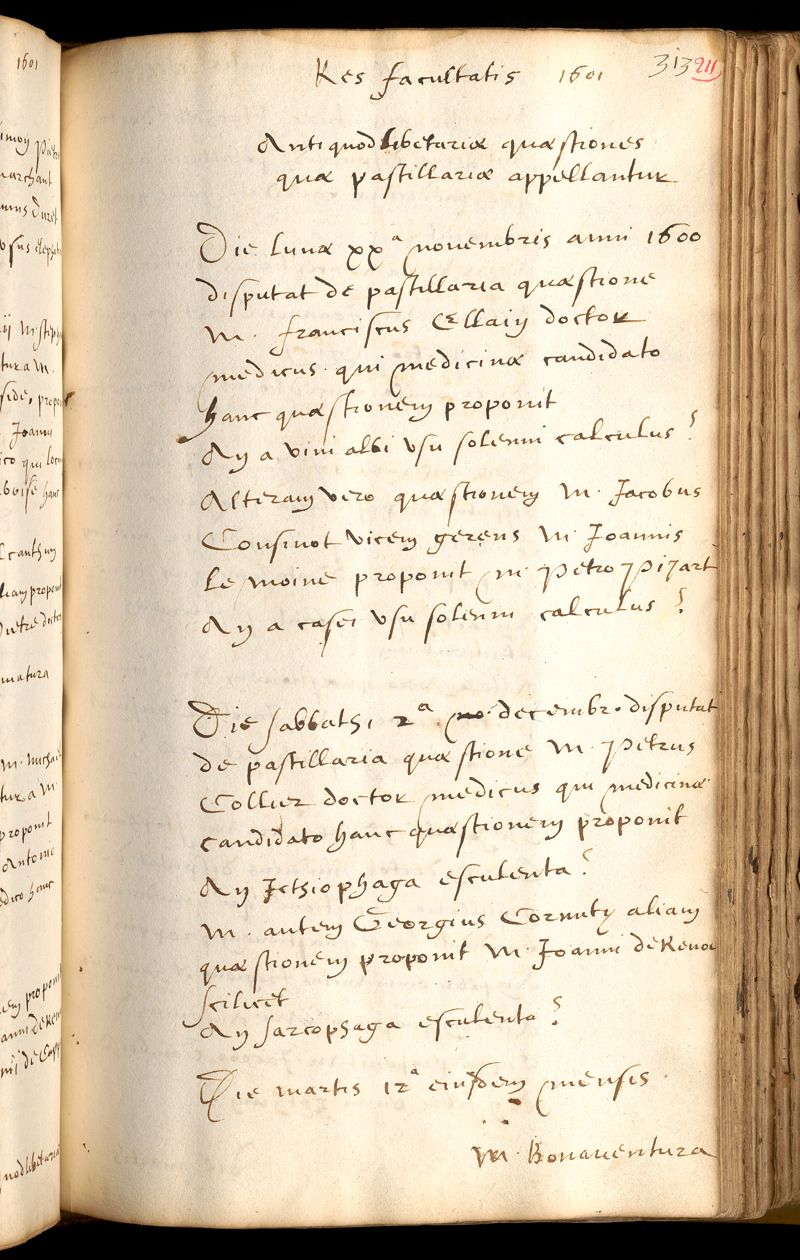 1601
Res facultatis 1601
313
Antiquodlibetariæ quæstiones
quæ pastillariæ appellantur
Die lunæ xxª novembris anni 1600
disputat de pastillaria quæstione
M. franciscus Ellaiy doctor
medicus qui medicinæ candidato
hanc quæstionem proponit
An a vini albi vsu solenni calculus?
Alteram vero quæstionem M. Jacobus
Cousinot vicem gerens M. Joannis
le moine proponit m. Petro Pijart
An a casei vsu solenni calculus?
Die sabbathi 2ª decembr. disputat
de pastillaria quæstione M. Petrus
Collier doctor medicus qui medicinæ
candidato hanc quæstionem proponit
An Icthiophaga esculenta?
M. autem Georgius Cornuty aliam
quæstionem proponit M. Joanni de Renou
scilicet
An sarcophaga esculenta?
Die martis 12ª eiusdem mensis
M. Bonauentura